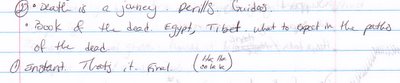 ② • Death is a journey. Perills. Guides.
• Book of the dead. Egypt, Tibet what to expect in the paths
of the dead.
① Instant. Thats it. Final.